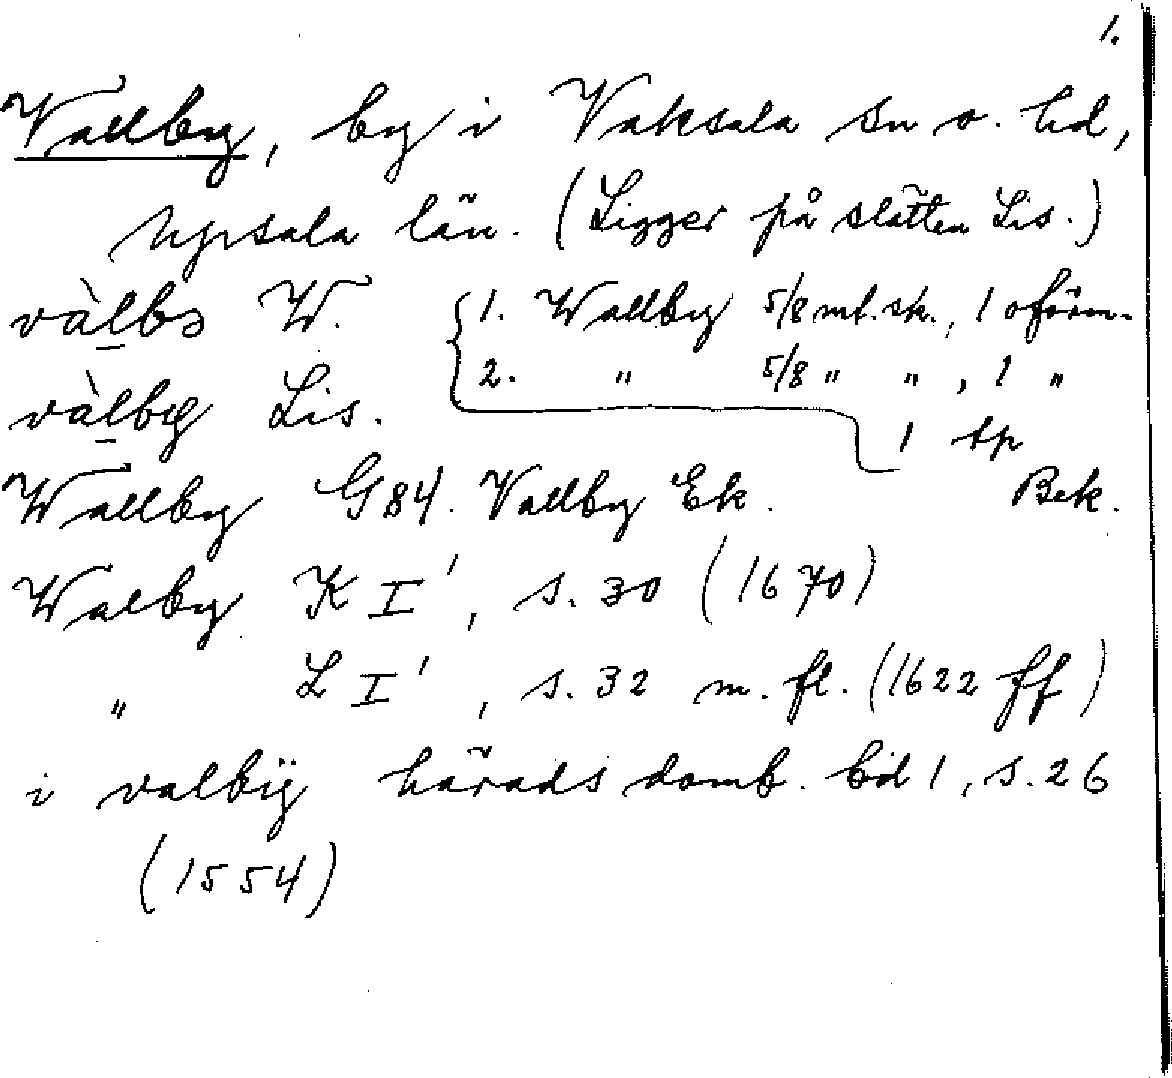 1.
Wallby, by i Vaksala sn o. hd,
Upsala län. (Ligger på slätten Lis.)
vàlbo W. { 1. Wallby 5/8 mt. sk., 1 oförm.
vàlby Lis. 2. " 5/8 " ", 1 "
1 tp
Wallby G84. Vallby Ek. Bek.
Walby K I¹, s. 30 (1670)
" L I¹, s. 32 m. fl. (1622 ff)
i valbÿ härads domb. bd 1, s. 26
(1554)